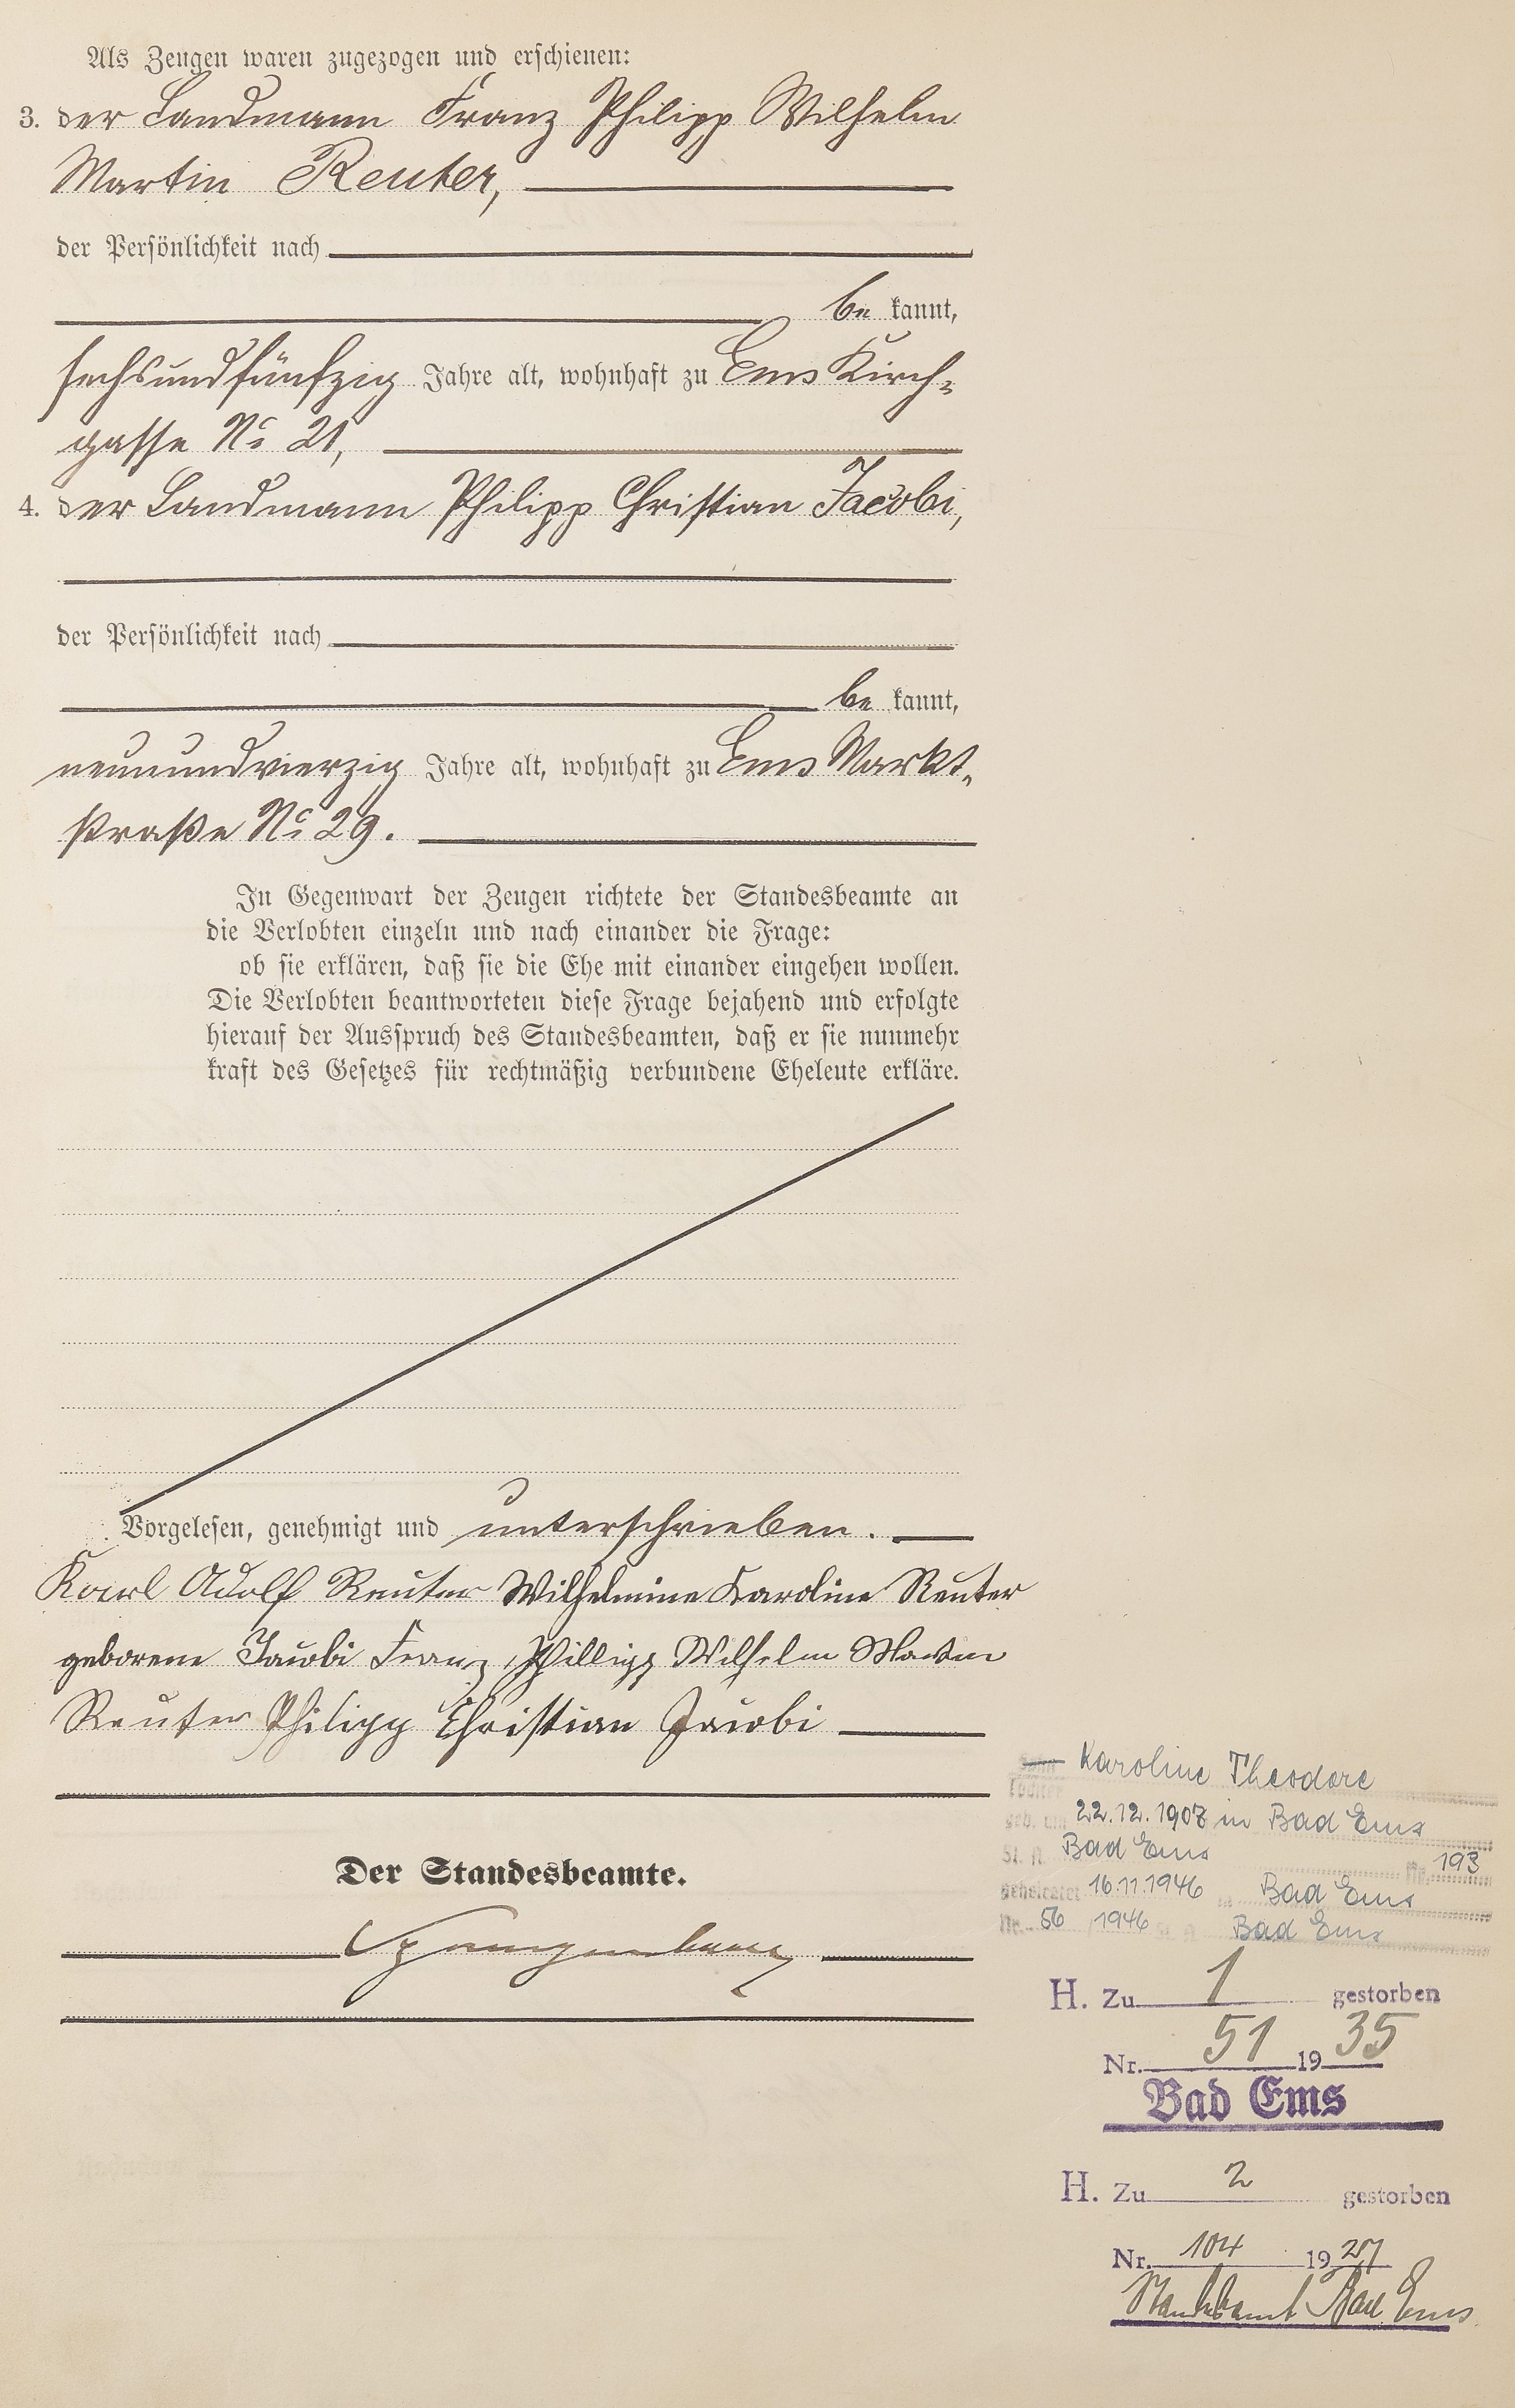 Als Zeugen waren zugezogen und erschienen:
3. der Landmann Franz Philipp Wilhelm
Martin Reuter,
der Persönlichkeit nach
be kannt,
sechsundfünfzig Jahre alt, wohnhaft zu Ems Kirch-
gasse No 21,
4. der Landmann Philipp Christian Jacobi,
der Persönlichkeit nach
be kannt,
neunundvierzig Jahre alt, wohnhaft zu Ems Markt-
straße No 29.
In Gegenwart der Zeugen richtete der Standesbeamte an
die Verlobten einzeln und nach einander die Frage:
ob sie erklären, daß sie die Ehe mit einander eingehen wollen.
Die Verlobten beantworteten diese Frage bejahend und erfolgte
hierauf der Ausspruch des Standesbeamten, daß er sie nunmehr
kraft des Gesetzes für rechtmäßig verbundene Eheleute erkläre.
Vorgelesen, genehmigt und unterschrieben.
Karl Adolf Reuter Wilhelmine Karoline Reuter
geborene Jacobi Franz Phillipp Wilhelm Martin
Reuter Philipp Christian Jacobi
Der Standesbeamte.
Karoline Theodore
Tochter
geb. am 22.12.1907 in Bad Ems
St. A. Bad Ems Nr. 193
geheiratet 16.11.1946 in Bad Ems
Nr. 56 / 1946 St. A. Bad Ems
H. Zu 1 gestorben
Nr. 51 1935
Bad Ems
H. Zu 2 gestorben
Nr. 104 1927
Standesamt Bad Ems